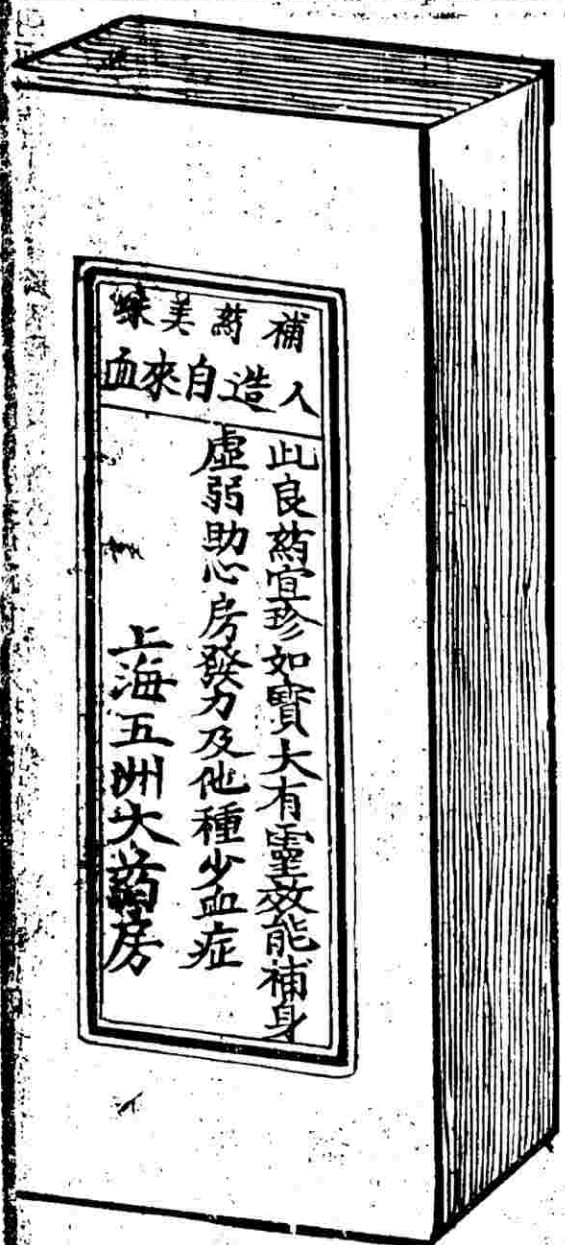 補葯美
人造自來血
此良葯宜珍如寶大有靈效能補身
虛弱助心房發力及他種少血症
上海五洲大葯房